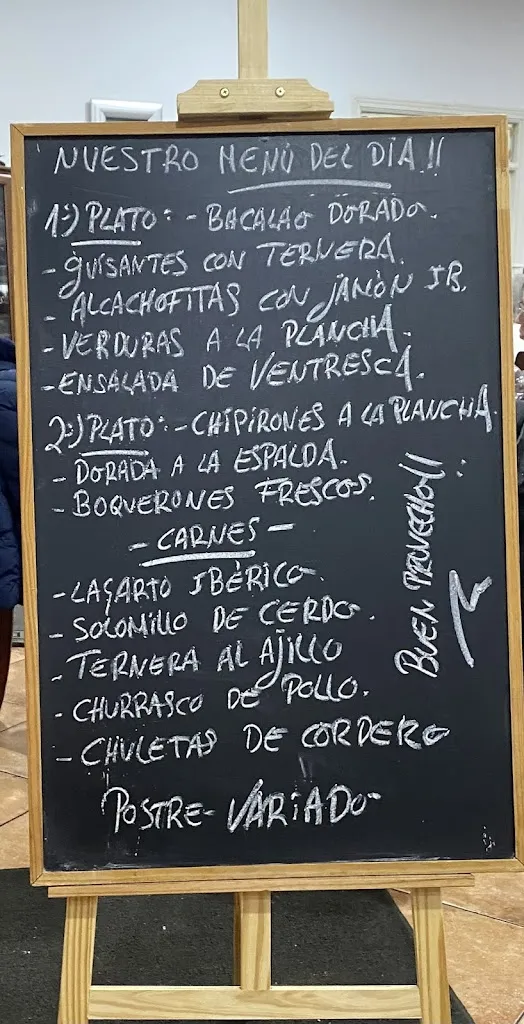 NUESTRO MENÚ DEL DÍA!!
1º) PLATO: - BACALAO DORADO.
- GUISANTES CON TERNERA.
- ALCACHOFITAS CON JAMÓN IB.
- VERDURAS A LA PLANCHA.
- ENSALADA DE VENTRESCA.
2º) PLATO: - CHIPIRONES A LA PLANCHA.
- DORADA A LA ESPALDA.
- BOQUERONES FRESCOS.
- CARNES -
- LAGARTO IBÉRICO.
- SOLOMILLO DE CERDO.
- TERNERA AL AJILLO
- CHURRASCO DE POLLO.
- CHULETAS DE CORDERO
POSTRE - VARIADO
BUEN PROVECHO!!